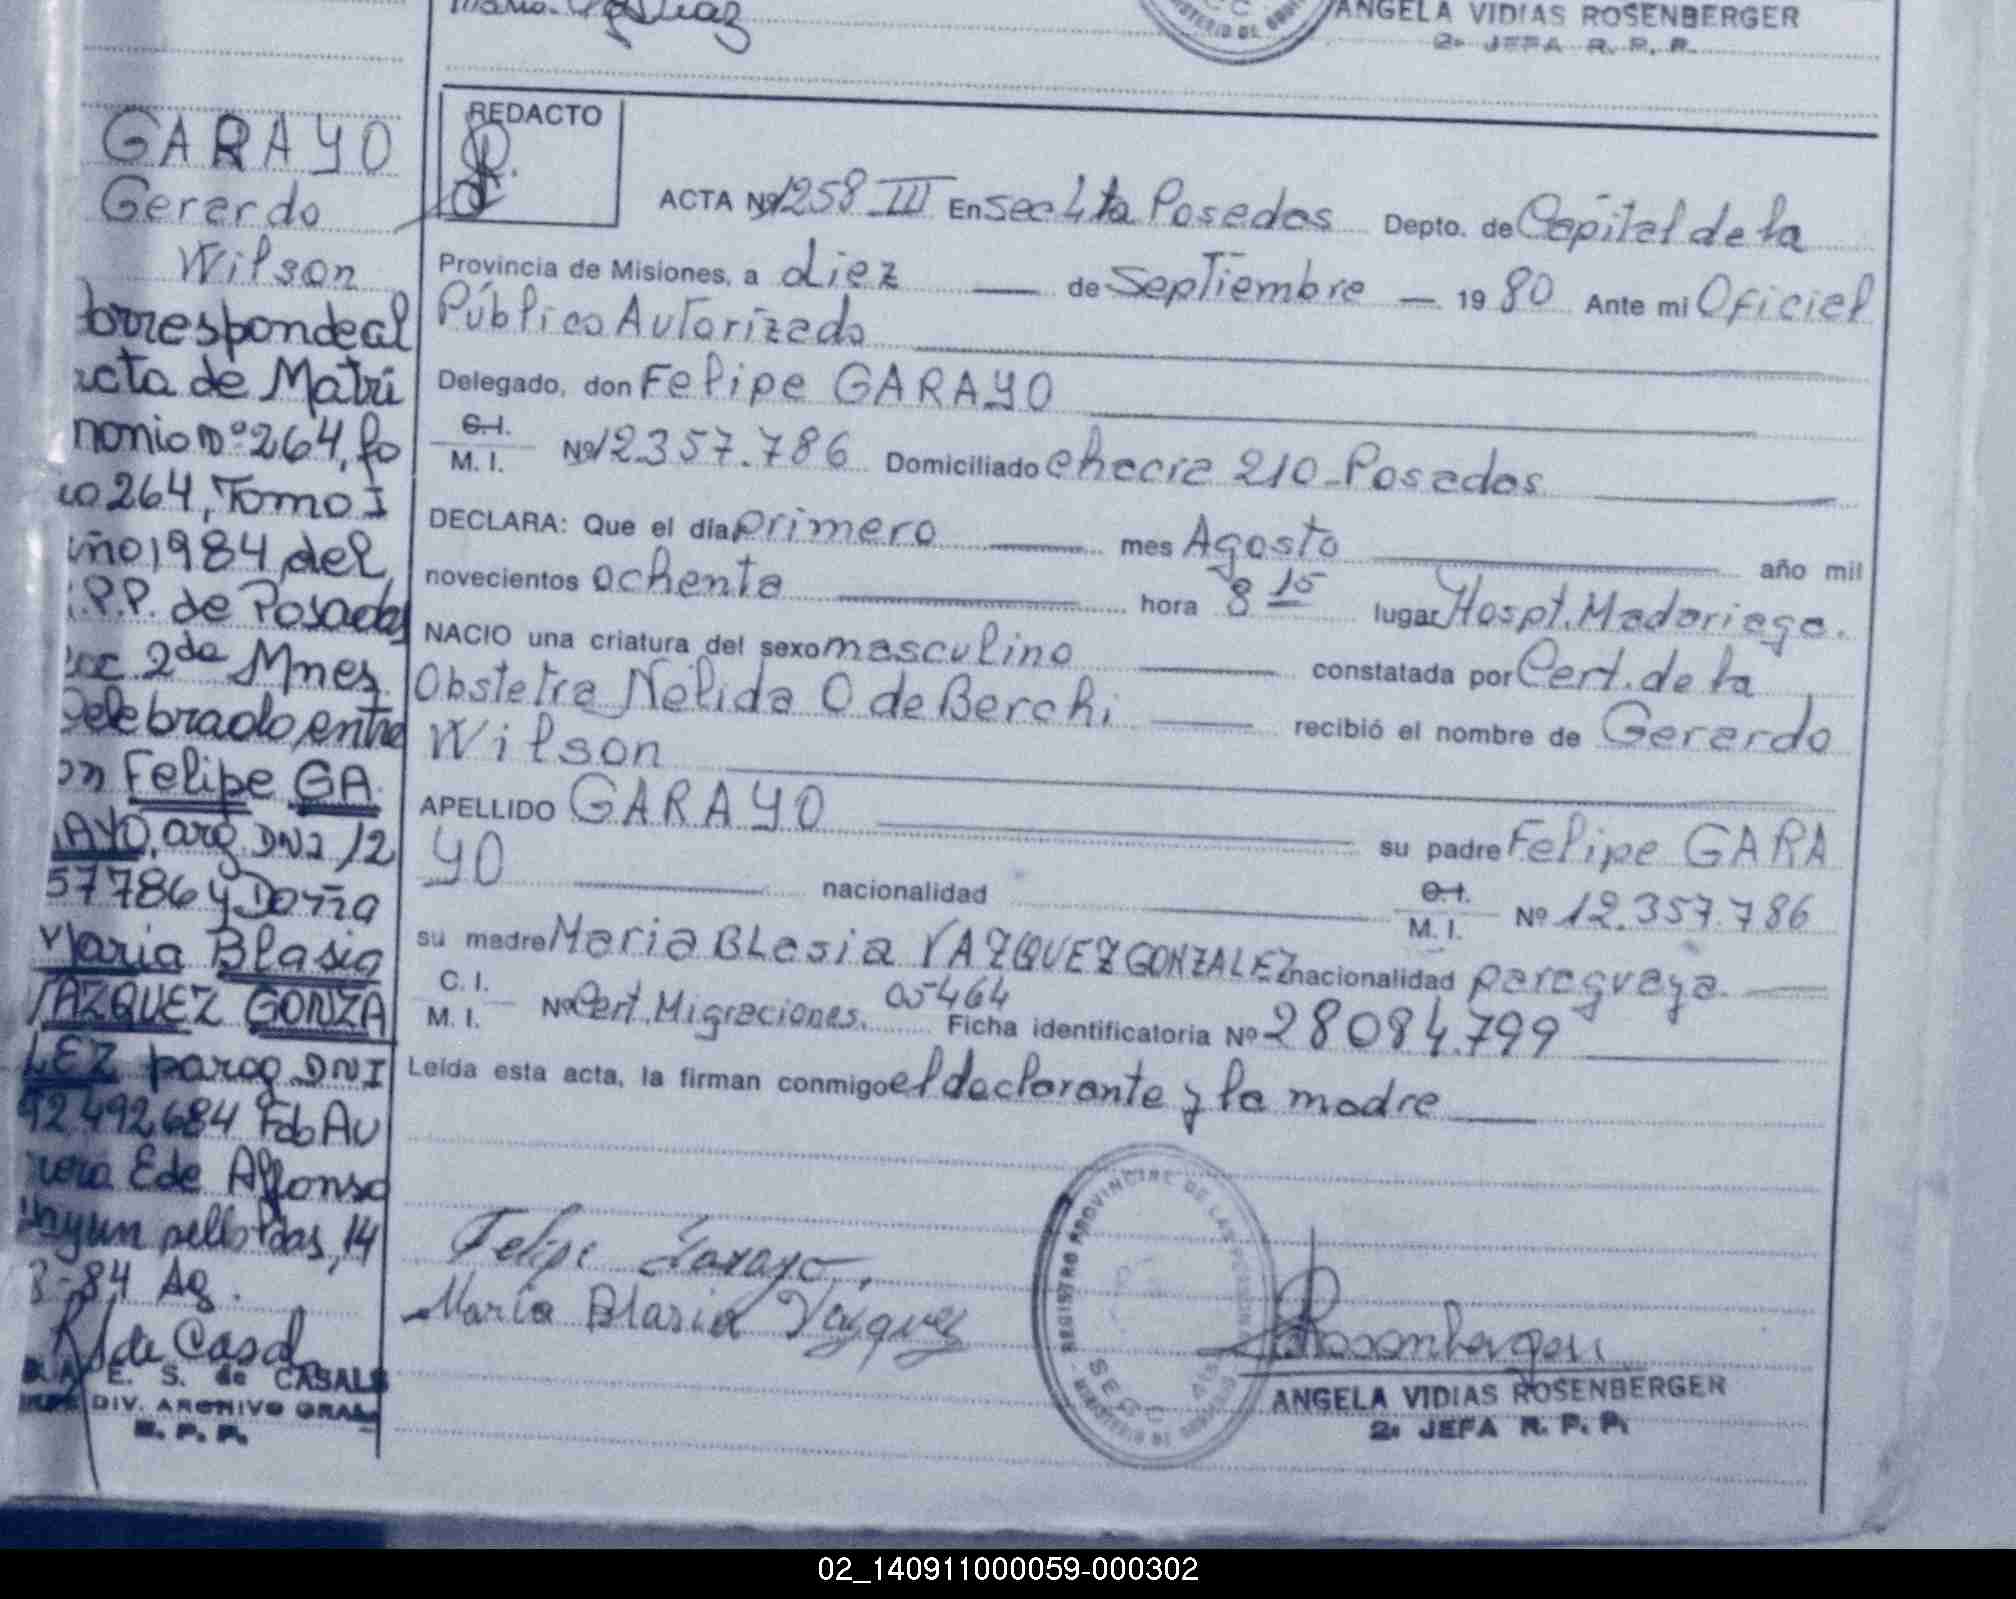 ANGELA VIDIAS ROSENBERGER
2a JEFA R. P. P.
GARAYO
Gerardo
Wilson
orresponde al
acta de Matri
monio Nº 264, fo
io 264, Tomo I
año 1984, del
R.P.P. de Posadas
Sec. 2da Mnes
Celebrado, entre
on Felipe GA
RAYO, arg. DNI 12
57786 y Doña
Maria Blasia
VAZQUEZ GONZA
LEZ parag DNI
92.492.684 Fdo Au
rora E de Affonso
14
84 Ag.
R S de Casal
E. S. de CASALS
DIV. ARCHIVO GRAL
R. P. P.
REDACTO
ACTA Nº 1258 III En Sec 4ta Posadas Depto. de Capital de la
Provincia de Misiones, a diez — de Septiembre — 1980 Ante mi Oficial
Público Autorizado
Delegado, don Felipe GARAYO
C.I.
M. I. Nº 12.357.786 Domiciliado Chacra 210 - Posadas
DECLARA: Que el día primero — mes Agosto — año mil
novecientos ochenta — hora 8 15 lugar Hospt. Madariaga.
NACIO una criatura del sexo masculino — constatada por Cert. de la
Obstetra Nélida O de Berchi — recibió el nombre de Gerardo
Wilson
APELLIDO GARAYO — su padre Felipe GARA
YO — nacionalidad — C.I. M. I. Nº 12.357.786
su madre Maria Blasia VAZQUEZ GONZALEZ nacionalidad paraguaya. —
C. I.
M. I. Nº Cert. Migraciones. 05464 Ficha identificatoria Nº 28084.799 —
Leída esta acta, la firman conmigo el declarante y la madre —
Felipe Garayo.
María Blasia Vázquez
REGISTRO PROVINCIAL DE LAS PERSONAS
SECC 4ta
MINISTERIO DE GOBIERNO
Rosenberger
ANGELA VIDIAS ROSENBERGER
2a JEFA R. P. P.
02_140911000059-000302